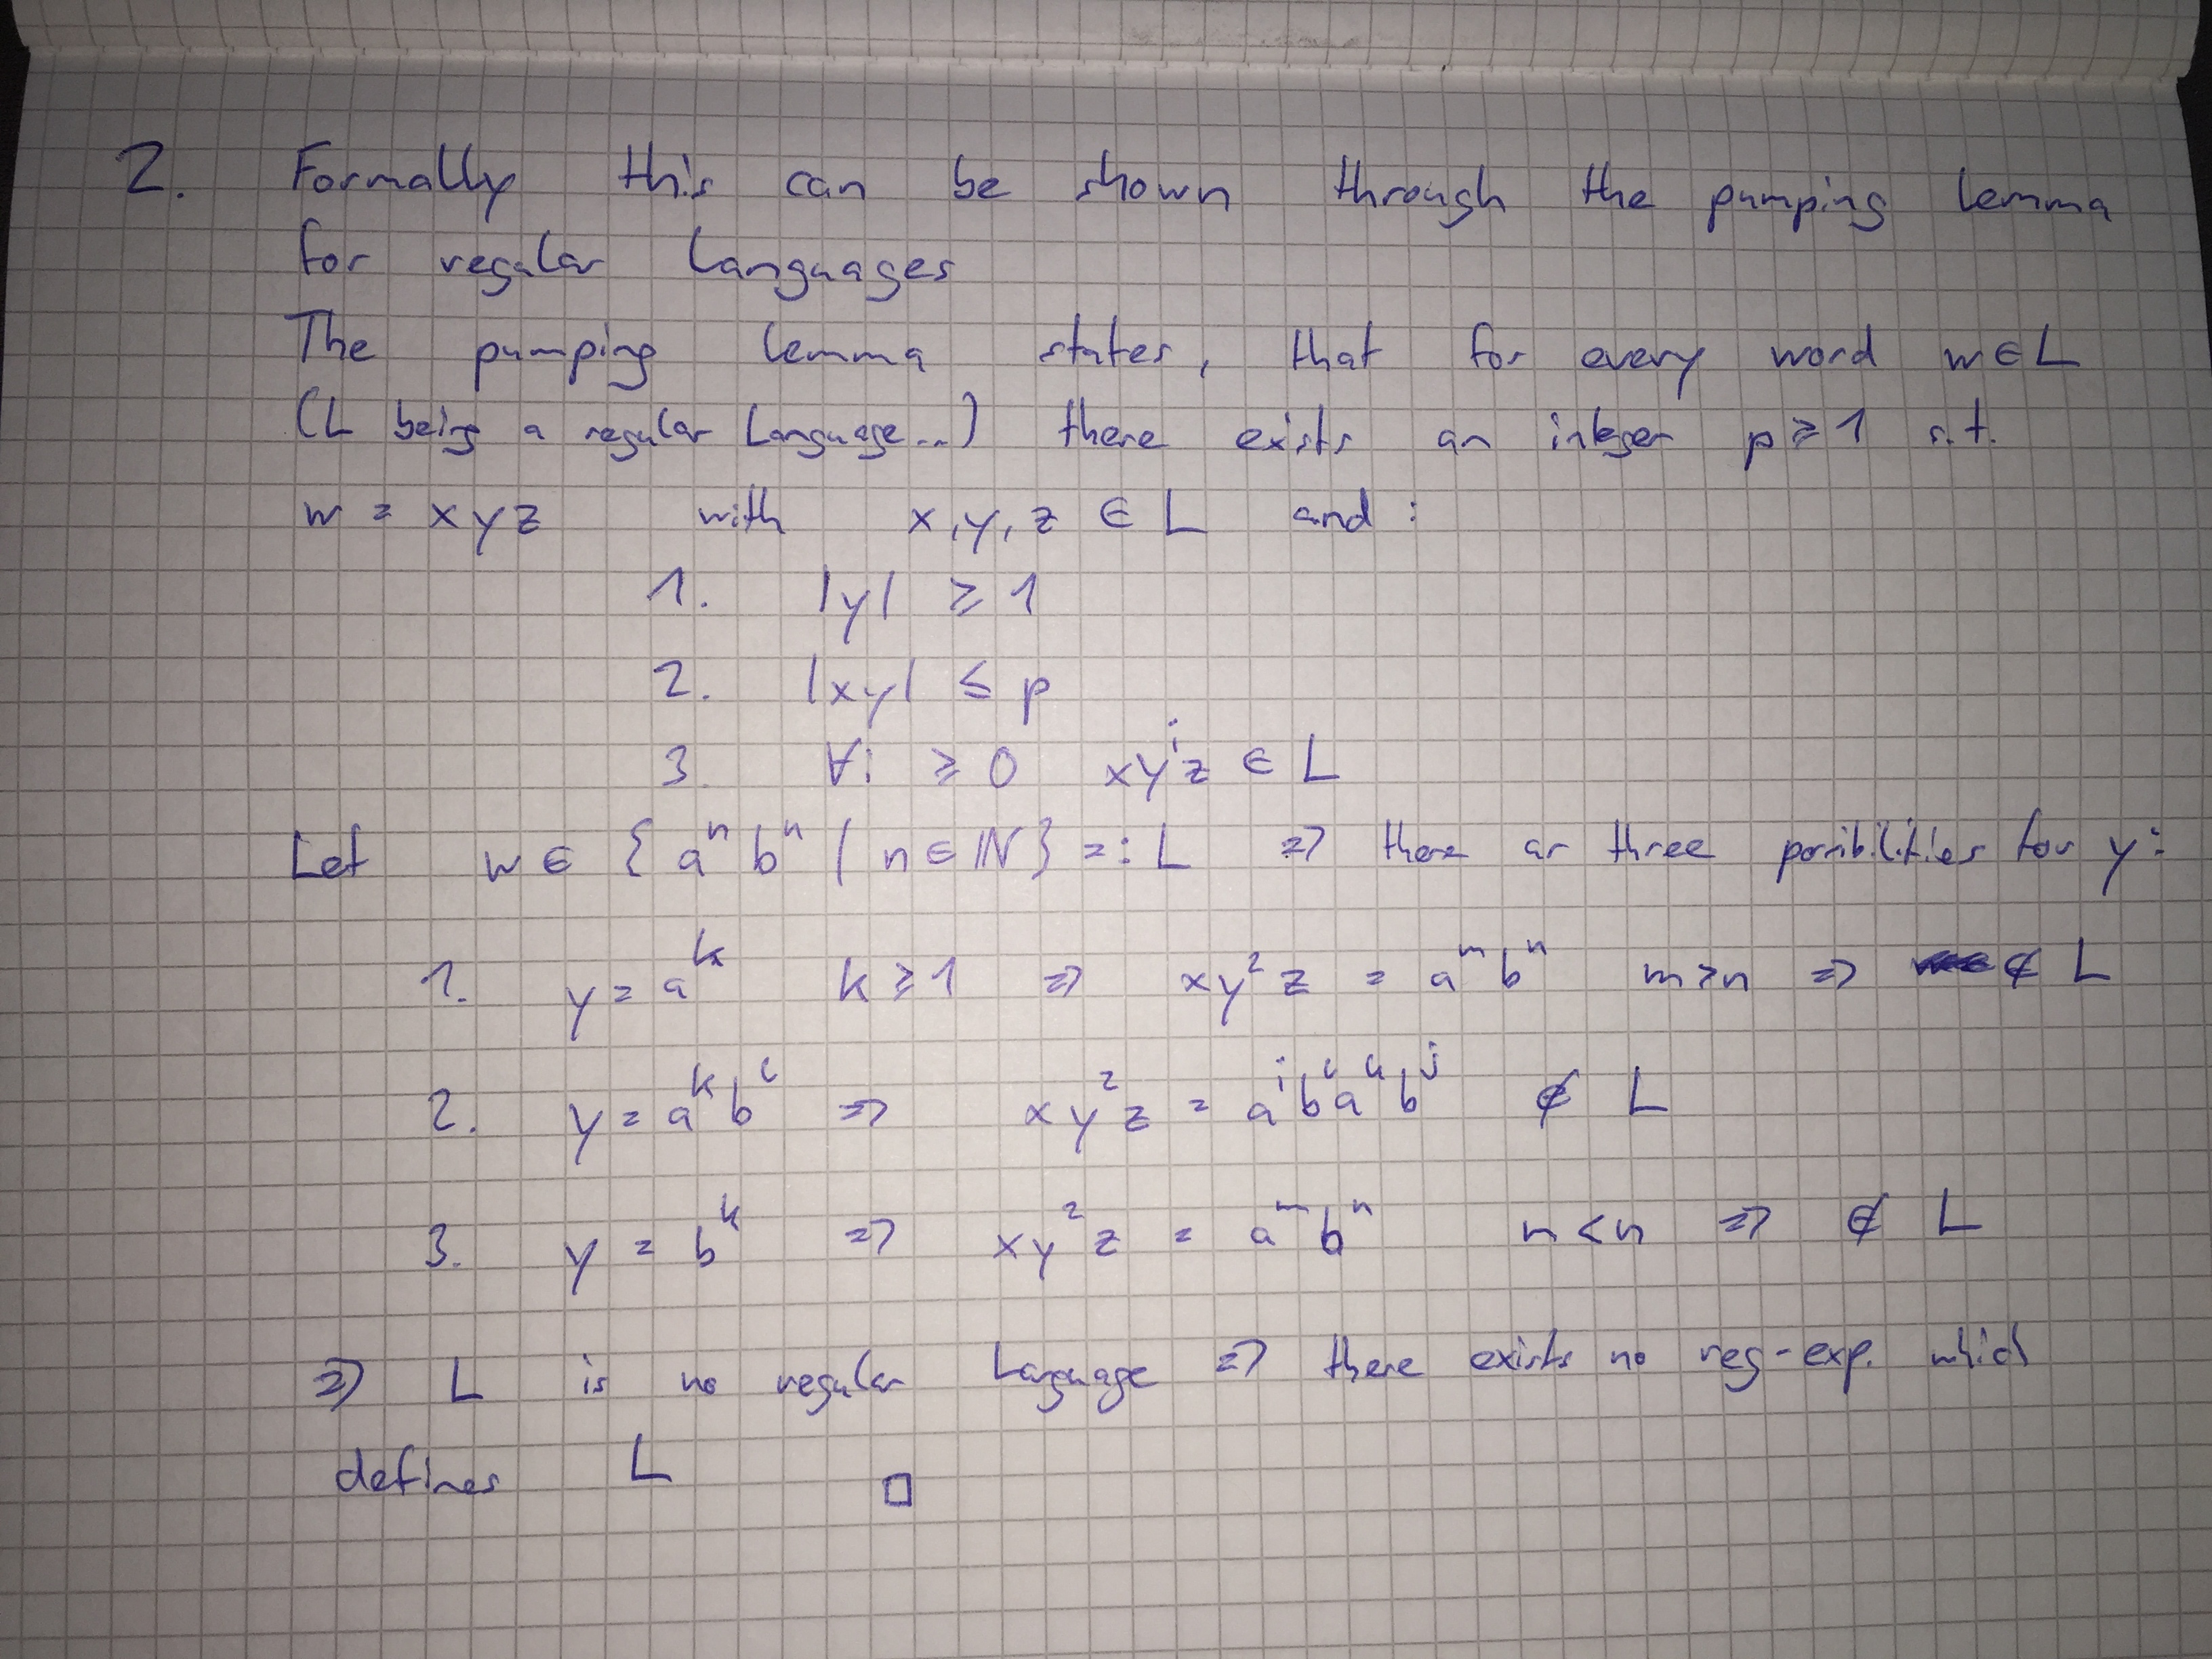 2. Formally this can be shown through the pumping lemma
for regular Languages
The pumping lemma states, that for every word w ∈ L
(L being a regular Language...) there exists an integer p ≥ 1 s.t.
w = xyz with x, y, z ∈ L and :
1. |y| ≥ 1
2. |xy| ≤ p
3. ∀i ≥ 0 xyⁱz ∈ L
Let w ∈ { aⁿ bⁿ | n ∈ ℕ } =: L ⇒ there ar three possibilities for y:
1. y = aᵏ k ≥ 1 ⇒ xy²z = aᵐ bⁿ m > n ⇒ ∉ L
2. y = aᵏ bˡ ⇒ xy²z = aⁱ bˡ aᵏ bʲ ∉ L
3. y = bᵏ ⇒ xy²z = aᵐ bⁿ n < n ⇒ ∉ L
⇒ L is no regular Language ⇒ there exists no reg-exp. which
defines L □